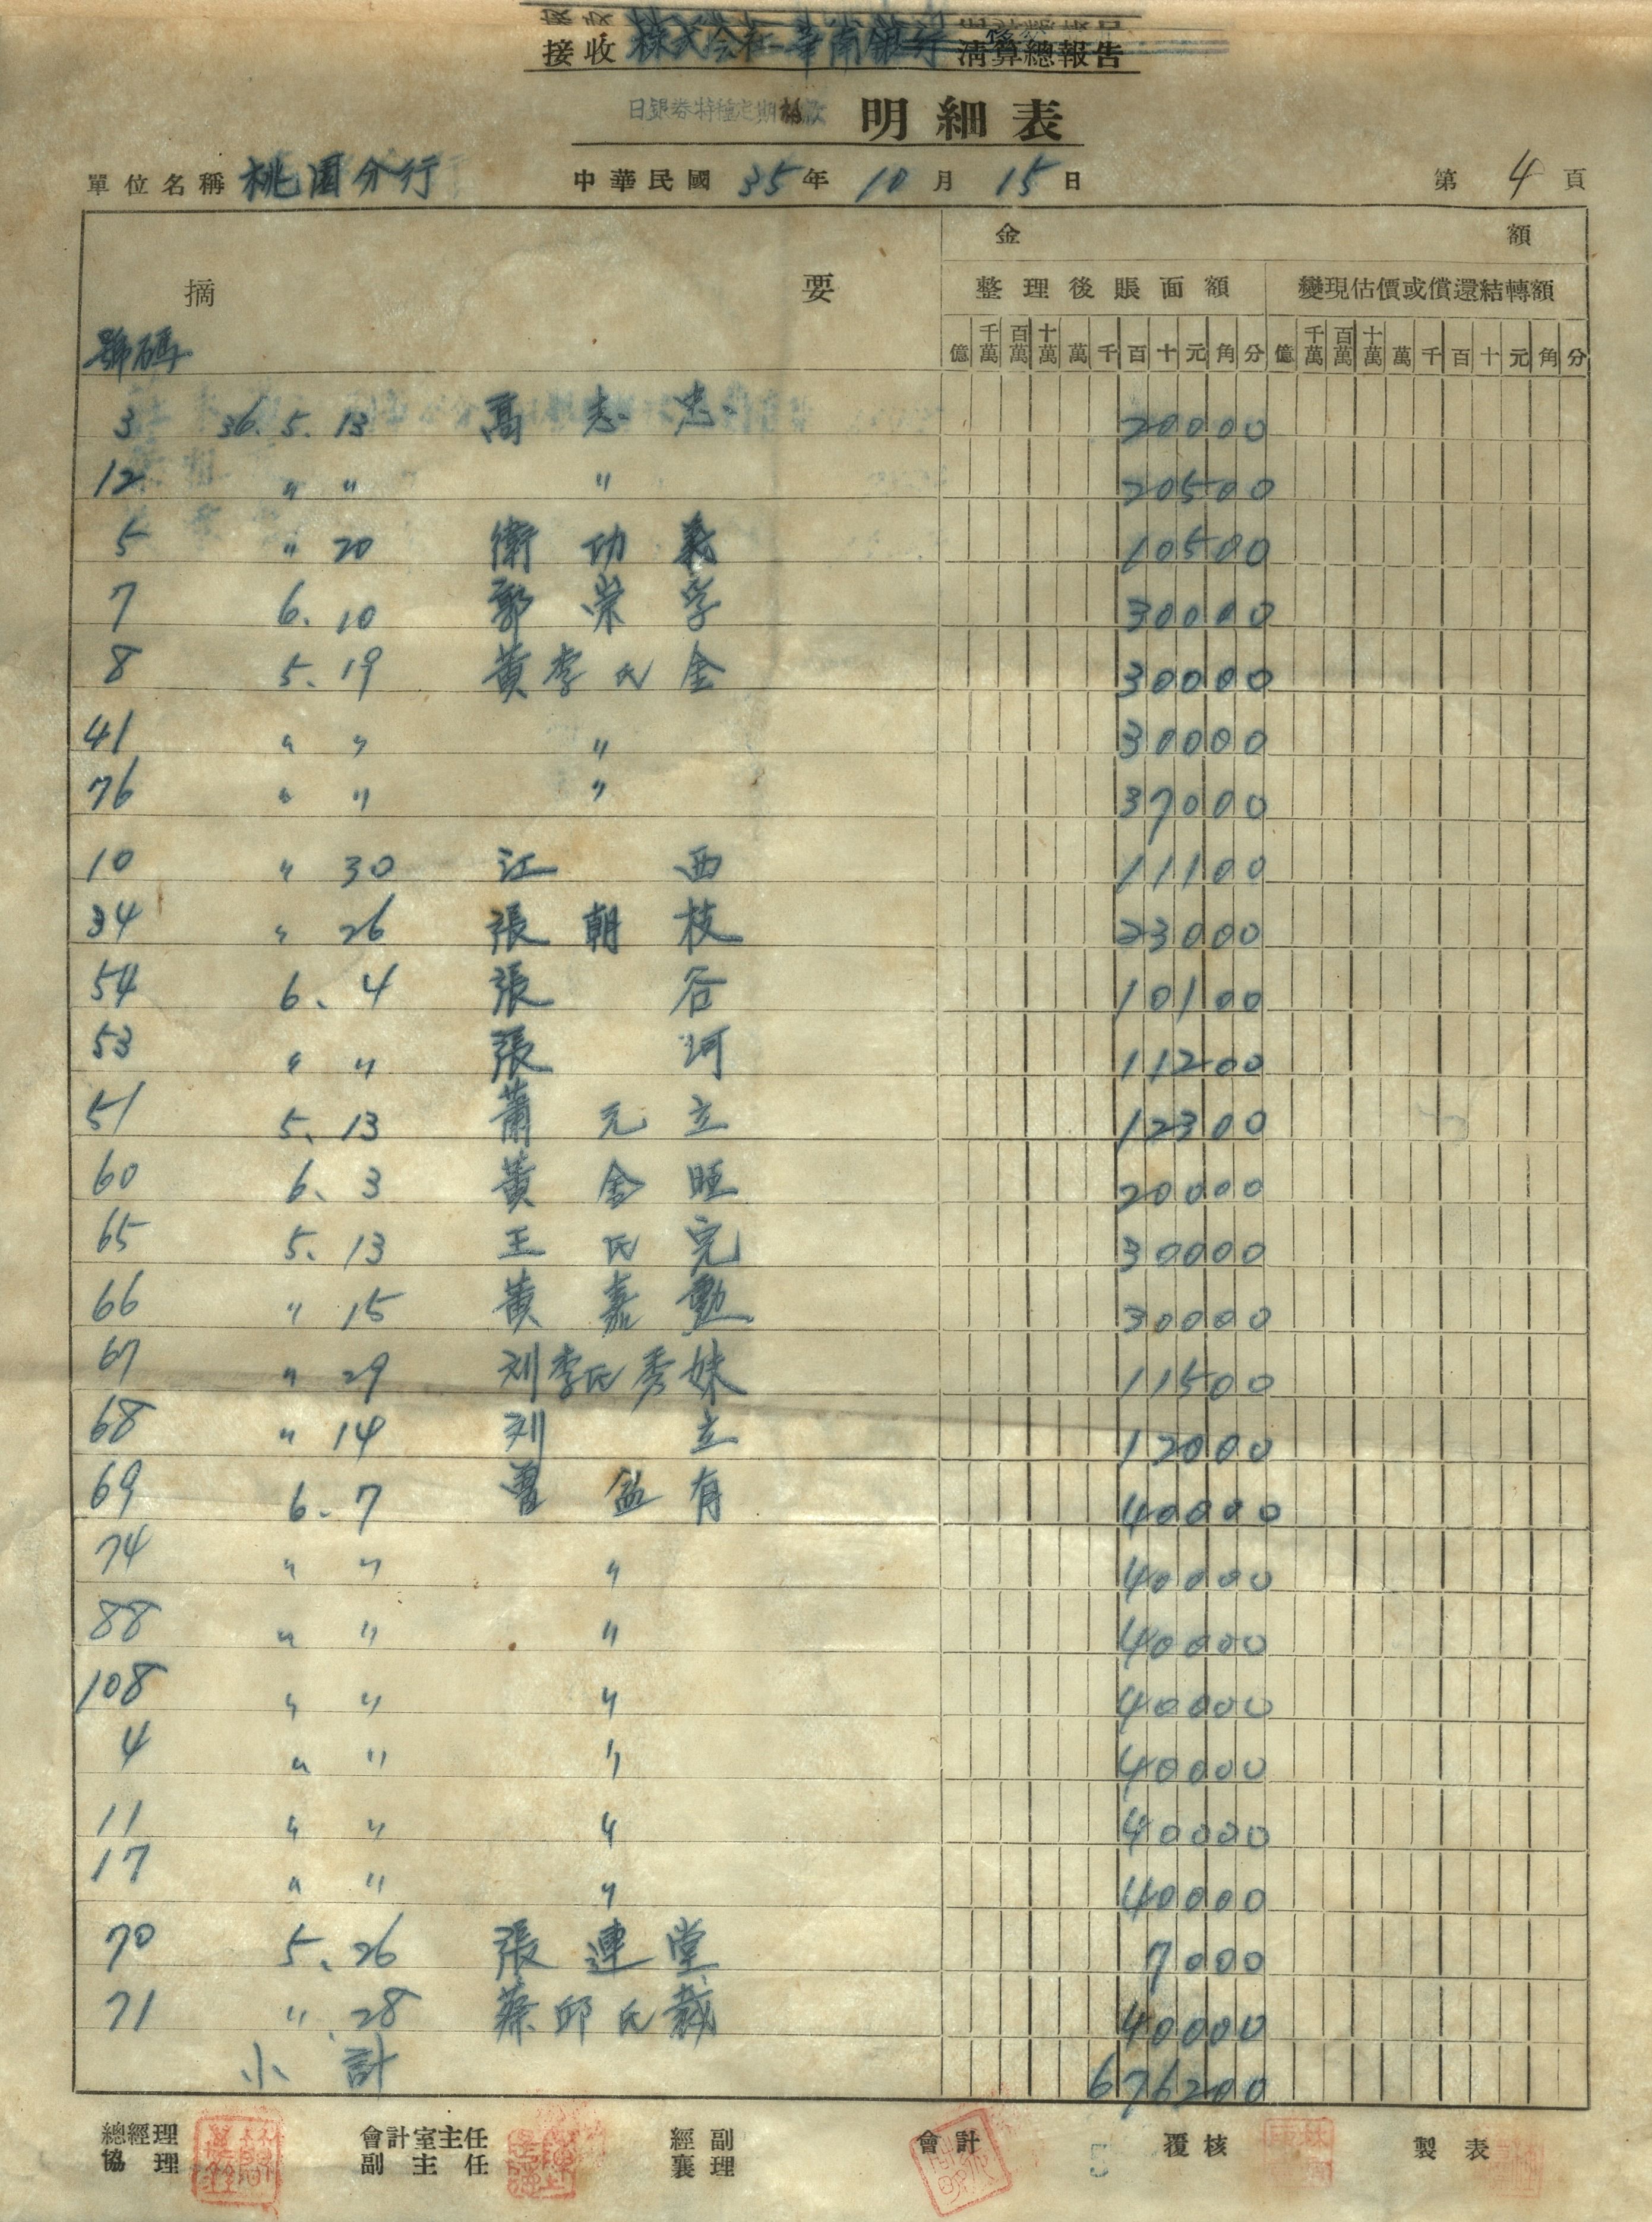 接收 株式会社華南銀行 清算總報告
日銀券特種定期存款 明細表
單位名稱 桃園分行 中華民國 35 年 10 月 15 日 第 4 頁
金額
摘要 整理後賬面額 變現估價或償還結轉額
號碼 億 千萬 百萬 十萬 萬 千 百 十 元 角 分 億 千萬 百萬 十萬 萬 千 百 十 元 角 分
3 36. 5. 13 高志忠 20000
12 〃 〃 〃 20500
5 〃 20 衛功義 10500
7 6. 10 郭榮学 30000
8 5. 19 黃李氏金 30000
41 〃 〃 〃 30000
76 〃 〃 〃 37000
10 〃 30 江西 11100
34 〃 26 張朝枝 23000
54 6. 4 張谷 10100
53 〃 〃 張河 11200
51 5. 13 蕭元立 12300
60 6. 3 黃金旺 20000
65 5. 13 王氏完 30000
66 〃 15 黃嘉勳 30000
67 〃 29 刘李氏秀妹 11500
68 〃 14 刘立 12000
69 6. 7 曹益有 40000
74 〃 〃 〃 40000
88 〃 〃 〃 40000
108 〃 〃 〃 40000
4 〃 〃 〃 40000
11 〃 〃 〃 40000
17 〃 〃 〃 40000
70 5. 26 張連堂 7000
71 〃 28 蔡邱氏裁 40000
小計 676200
總經理 會計室主任 經副 會計 5 覆核 製表
協理 副主任 襄理